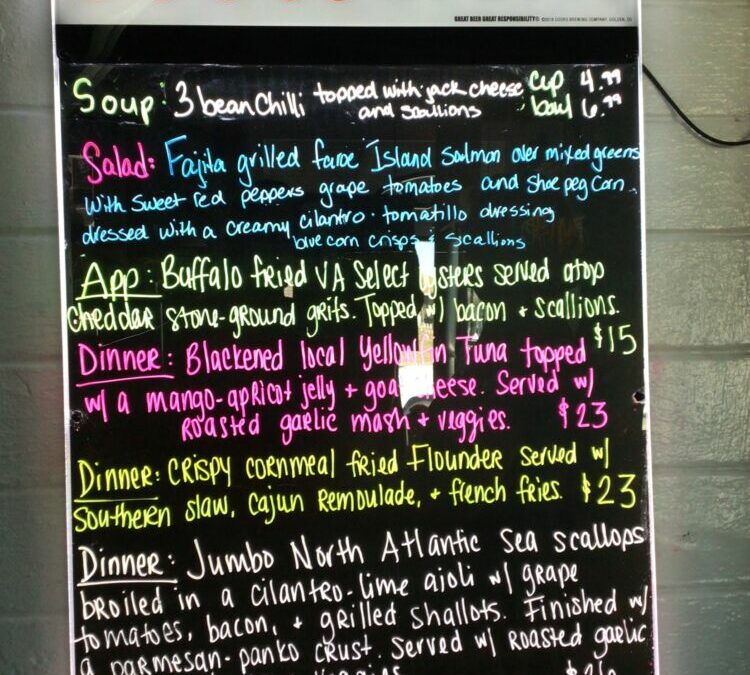 GREAT BEER GREAT RESPONSIBILITY® ©2019 COORS BREWING COMPANY, GOLDEN, CO
Soup: 3 bean Chilli topped with jack cheese cup 4.99
and scallions bowl 6.99
Salad: Fajita grilled faroe Island Salmon over mixed greens
with sweet red peppers grape tomatoes and shoe peg corn.
dressed with a creamy cilantro-tomatillo dressing
blue corn crisps & scallions
App: Buffalo fried VA Select oysters served atop
cheddar stone-ground grits. Topped w/ bacon + scallions.
$15
Dinner: Blackened local Yellowfin Tuna topped
w/ a mango-apricot jelly + goat cheese. Served w/
Roasted garlic mash + veggies. $23
Dinner: Crispy cornmeal fried Flounder served w/
Southern slaw, Cajun Remoulade, + french fries. $23
Dinner: Jumbo North Atlantic Sea scallops
broiled in a cilantro-lime aioli w/ grape
tomatoes, bacon, + grilled shallots. Finished w/
a parmesan-panko crust. Served w/ Roasted garlic